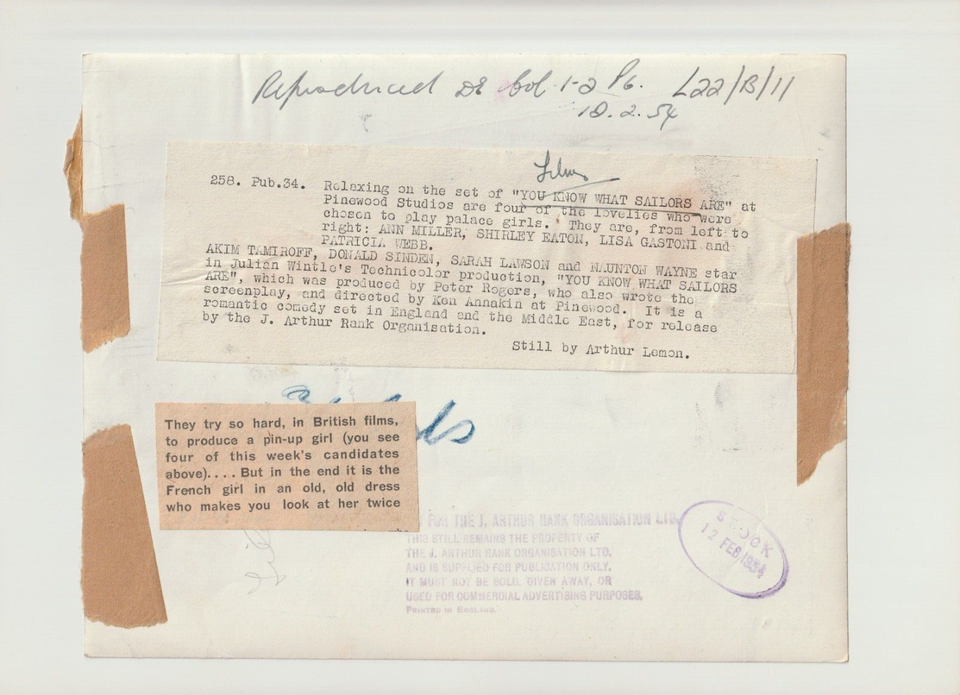 Reproduced DE Col 1-2 P6. L22/B/11
10.2.54
Films
258. Pub.34. Relaxing on the set of "YOU KNOW WHAT SAILORS ARE" at
Pinewood Studios are four of the lovelies who were
chosen to play palace girls. They are, from left to
right: ANN MILLER, SHIRLEY EATON, LISA GASTONI and
PATRICIA WEBB.
AKIM TAMIROFF, DONALD SINDEN, SARAH LAWSON and NAUNTON WAYNE star
in Julian Wintle's Technicolor production, "YOU KNOW WHAT SAILORS
ARE", which was produced by Peter Rogers, who also wrote the
screenplay, and directed by Ken Annakin at Pinewood. It is a
romantic comedy set in England and the Middle East, for release
by the J. Arthur Rank Organisation.
Still by Arthur Lemon.
They try so hard, in British films,
to produce a pin-up girl (you see
four of this week's candidates
above).... But in the end it is the
French girl in an old, old dress
who makes you look at her twice
FOR THE J. ARTHUR RANK ORGANISATION LTD.
THIS STILL REMAINS THE PROPERTY OF
THE J. ARTHUR RANK ORGANISATION LTD.
AND IS SUPPLIED FOR PUBLICATION ONLY.
IT MUST NOT BE SOLD, GIVEN AWAY, OR
USED FOR COMMERCIAL ADVERTISING PURPOSES.
PRINTED IN ENGLAND.
STOCK
12 FEB 1954